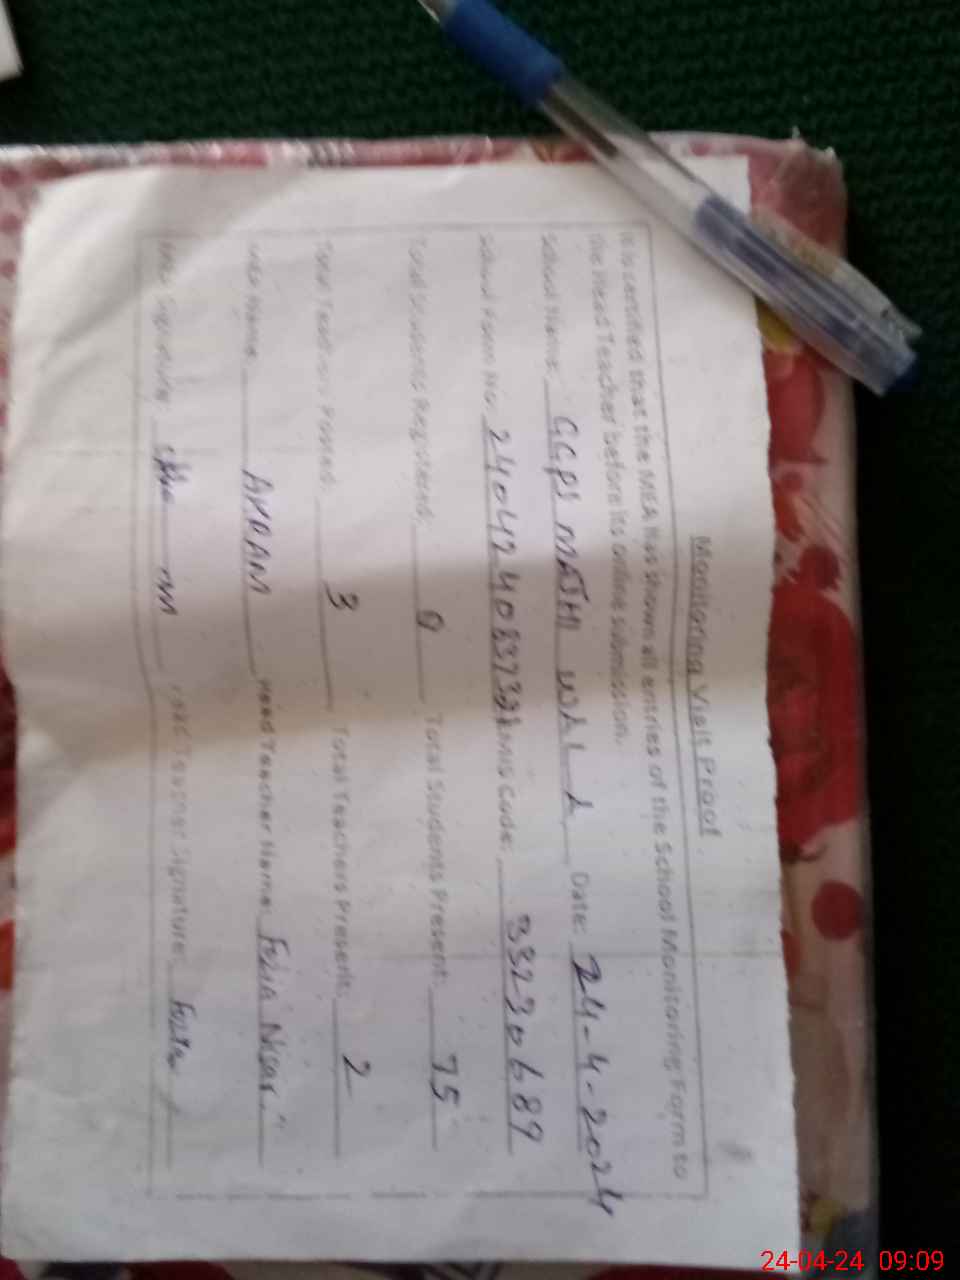 Monitoring Visit Proof
It is certified that the MEA has shown all entries of the School Monitoring Form to
the Head Teacher before its online submission.
School Name: GGPS MAJHI WALA Date: 24-4-2024
School Code: 33230689
Total Students Registered: 0 Total Students Present: 75
Total Teachers Posted: 3 Total Teachers Present: 2
MEA Name: AKRAM Head Teacher Name: Fozia Nisar
MEA Signature: Head Teacher Signature: Fozia
24-04-24 09:09